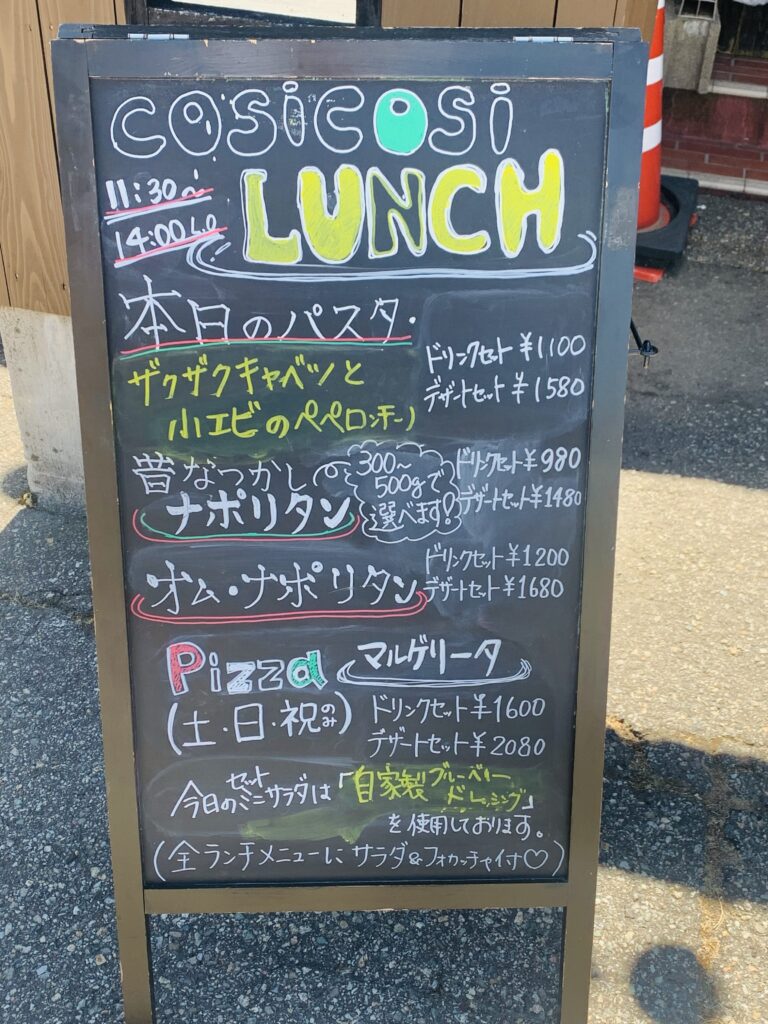 COSiCOSi
LUNCH
11:30〜
14:00 L.O
本日のパスタ・
ザクザクキャベツと
小エビのペペロンチーノ
ドリンクセット ¥1100
デザートセット ¥1580
昔なつかしの
ナポリタン
300〜
500gで
選べます!
ドリンクセット ¥980
デザートセット ¥1480
オム・ナポリタン
ドリンクセット ¥1200
デザートセット ¥1680
Pizza マルゲリータ
(土・日・祝のみ)
ドリンクセット ¥1600
デザートセット ¥2080
今日のセットミニサラダは「自家製ブルーベリー
ドレッシング」
を使用しております。
(全ランチメニューに サラダ&フォカッチャ付♡)